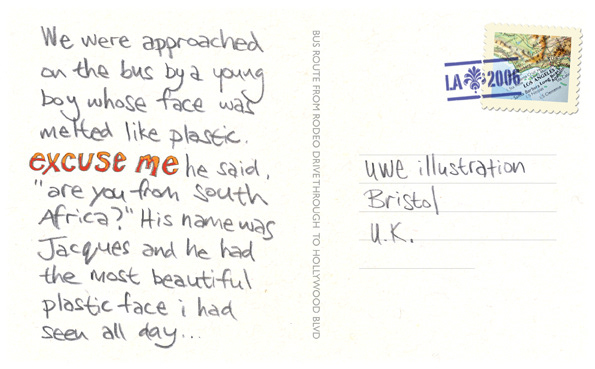 We were approached
on the bus by a young
boy whose face was
melted like plastic.
excuse me he said,
"are you from South
Africa?" His name was
Jacques and he had
the most beautiful
plastic face i had
seen all day...
BUS ROUTE FROM RODEO DRIVE THROUGH TO HOLLYWOOD BLVD
LA 2006
LOS ANGELES
uwe illustration
Bristol
U.K.